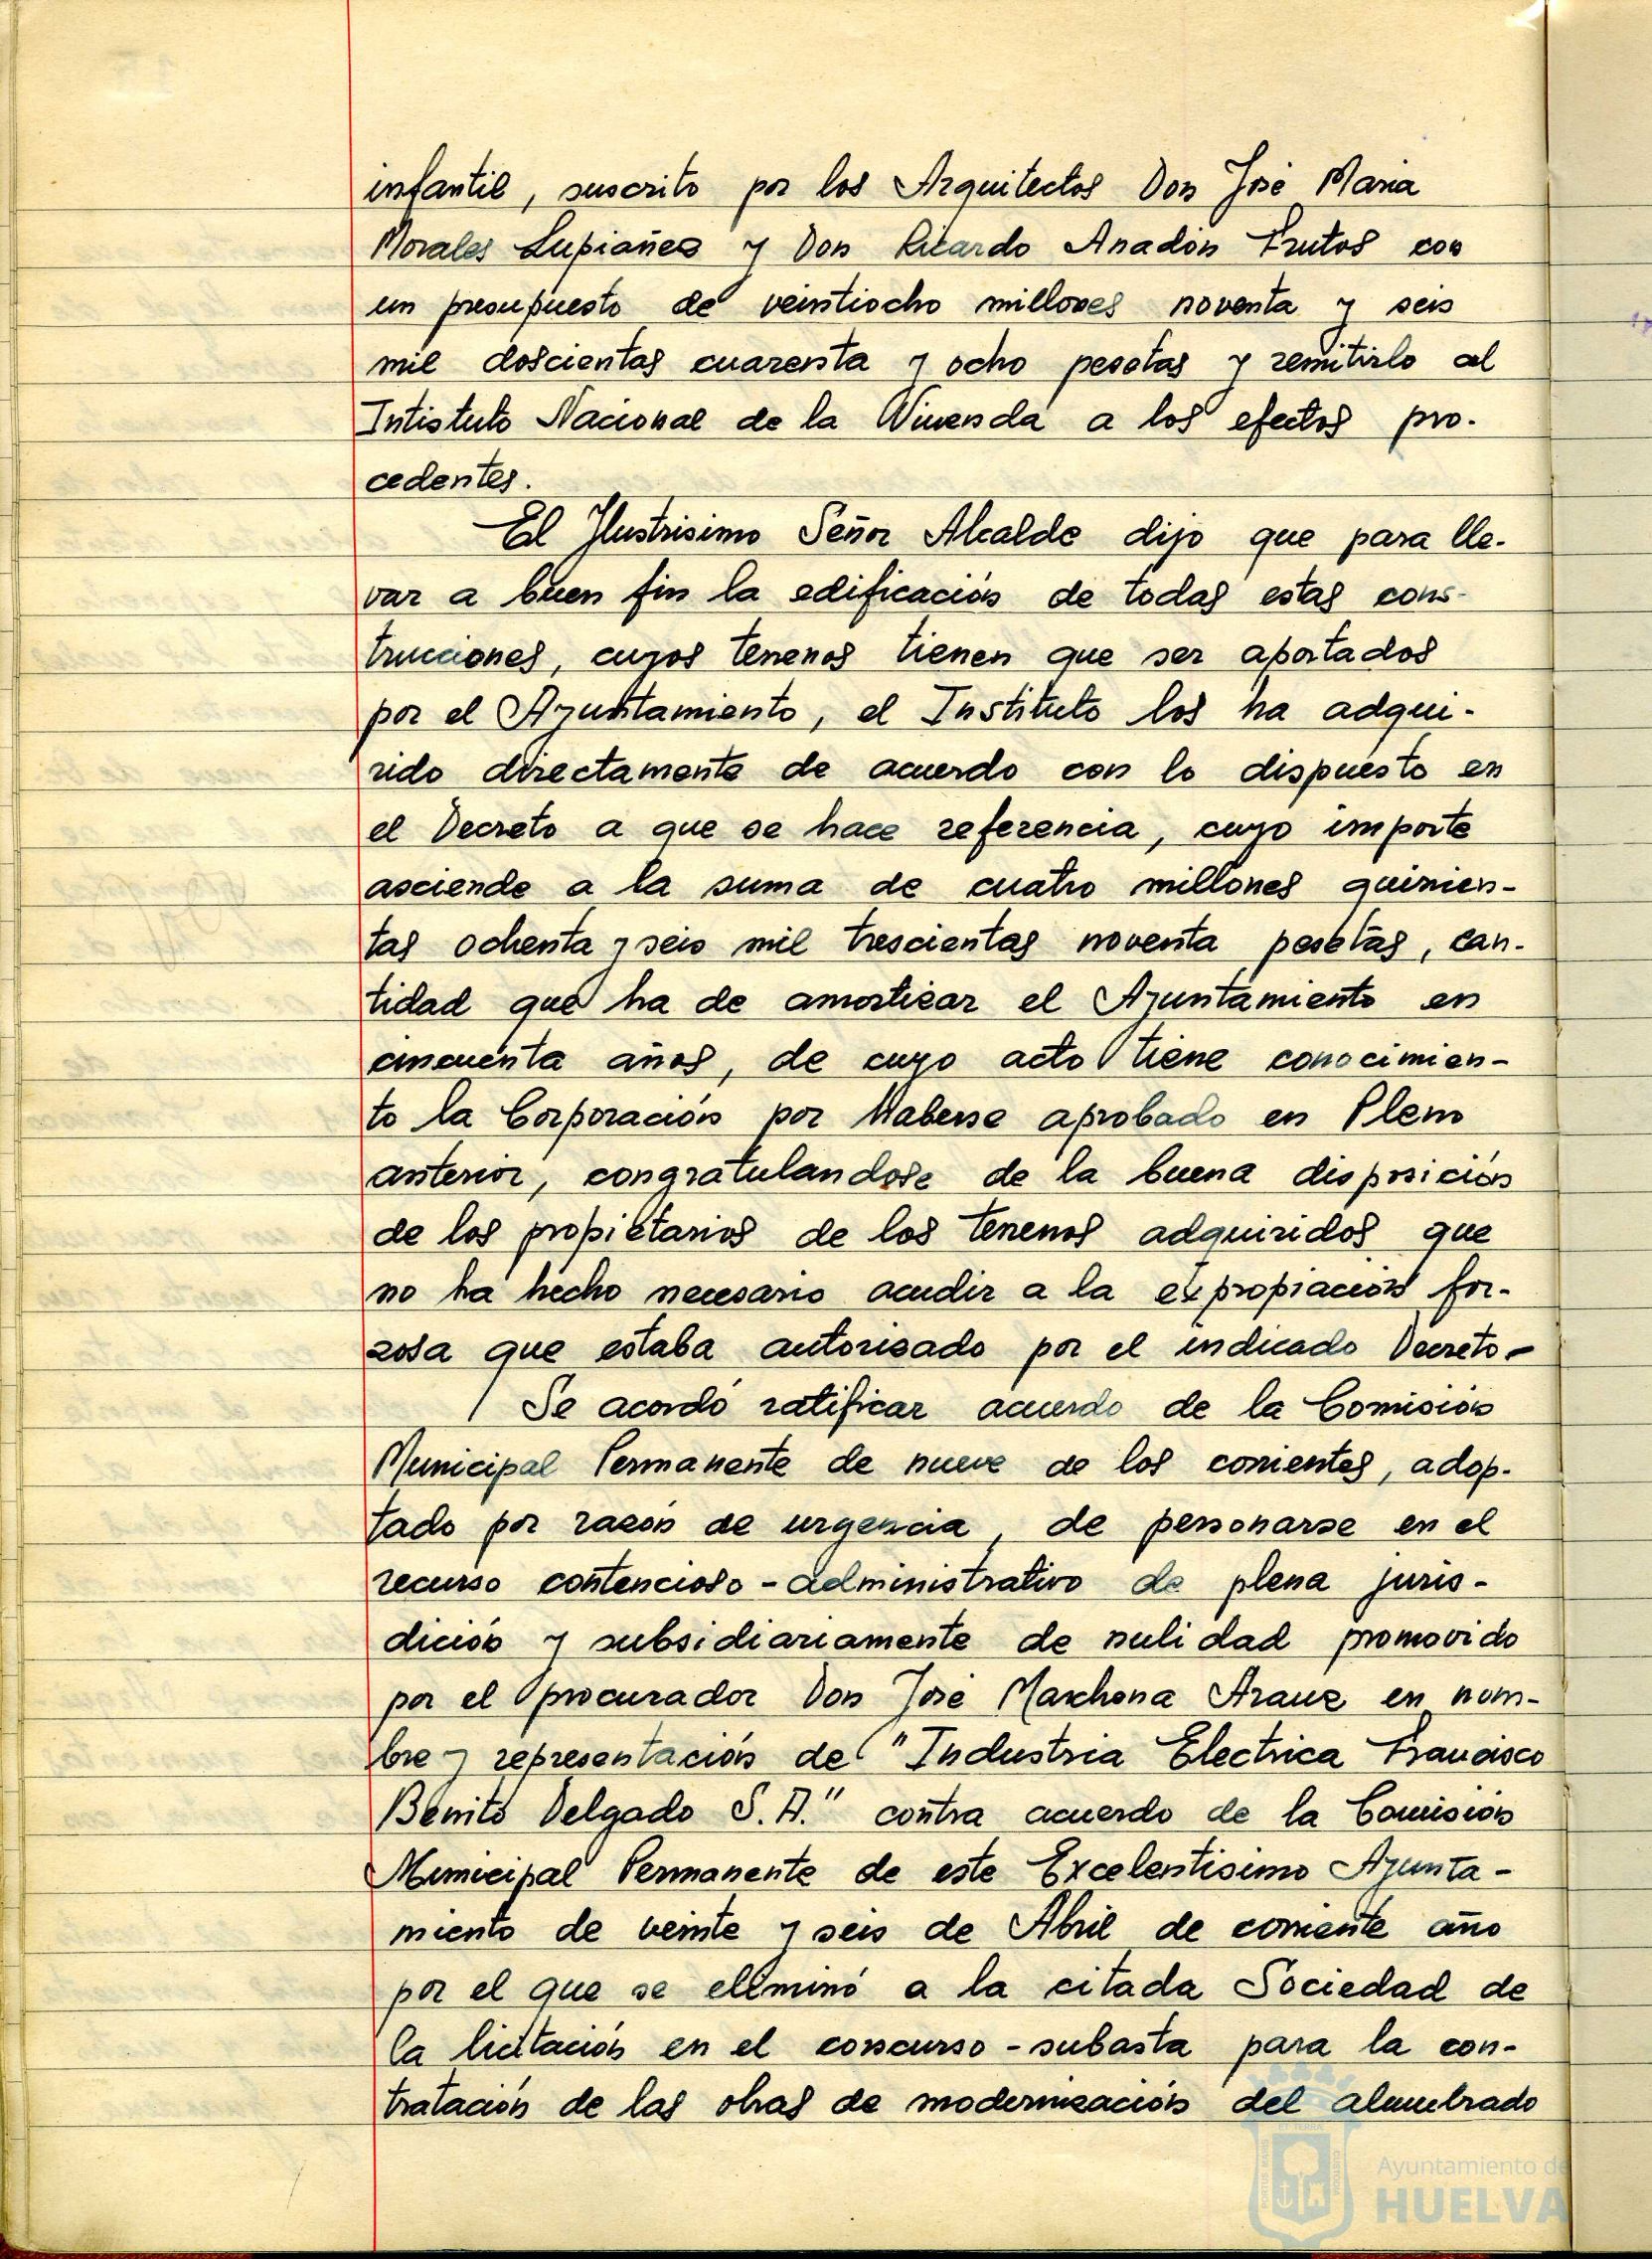 infantil, suscrito por los Arquitectos Don José Maria
Morales Lupiañez y Don Ricardo Anadón Frutos con
un presupuesto de veintiocho millones noventa y seis
mil doscientas cuarenta y ocho pesetas y remitirlo al
Intistuto Nacional de la Vivienda a los efectos pro-
cedentes.
El Ilustrisimo Señor Alcalde dijo que para lle-
var a buen fin la edificación de todas estas cons-
trucciones, cuyos terrenos tienen que ser aportados
por el Ayuntamiento, el Instituto los ha adqui-
rido directamente de acuerdo con lo dispuesto en
el Decreto a que se hace referencia, cuyo importe
asciende a la suma de cuatro millones quinien-
tas ochenta y seis mil trescientas noventa pesetas, can-
tidad que ha de amortizar el Ayuntamiento en
cincuenta años, de cuyo acto tiene conocimien-
to la Corporación por haberse aprobado en Pleno
anterior, congratulandose de la buena disposición
de los propietarios de los terrenos adquiridos que
no ha hecho necesario acudir a la expropiación for-
zosa que estaba autorizado por el indicado Decreto.-
Se acordó ratificar acuerdo de la Comisión
Municipal Permanente de nueve de los corrientes, adop-
tado por razón de urgencia, de personarse en el
recurso contencioso-administrativo de plena juris-
dición y subsidiariamente de nulidad promovido
por el procurador Don José Marchena Arauz en nom-
bre y representación de "Industria Electrica Francisco
Benito Delgado S.A." contra acuerdo de la Comisión
Municipal Permanente de este Excelentisimo Ayunta-
miento de veinte y seis de Abril de corriente año
por el que se eliminó a la citada Sociedad de
la licitación en el concurso-subasta para la con-
tratación de las obras de modernización del alumbrado
Ayuntamiento de
HUELVA